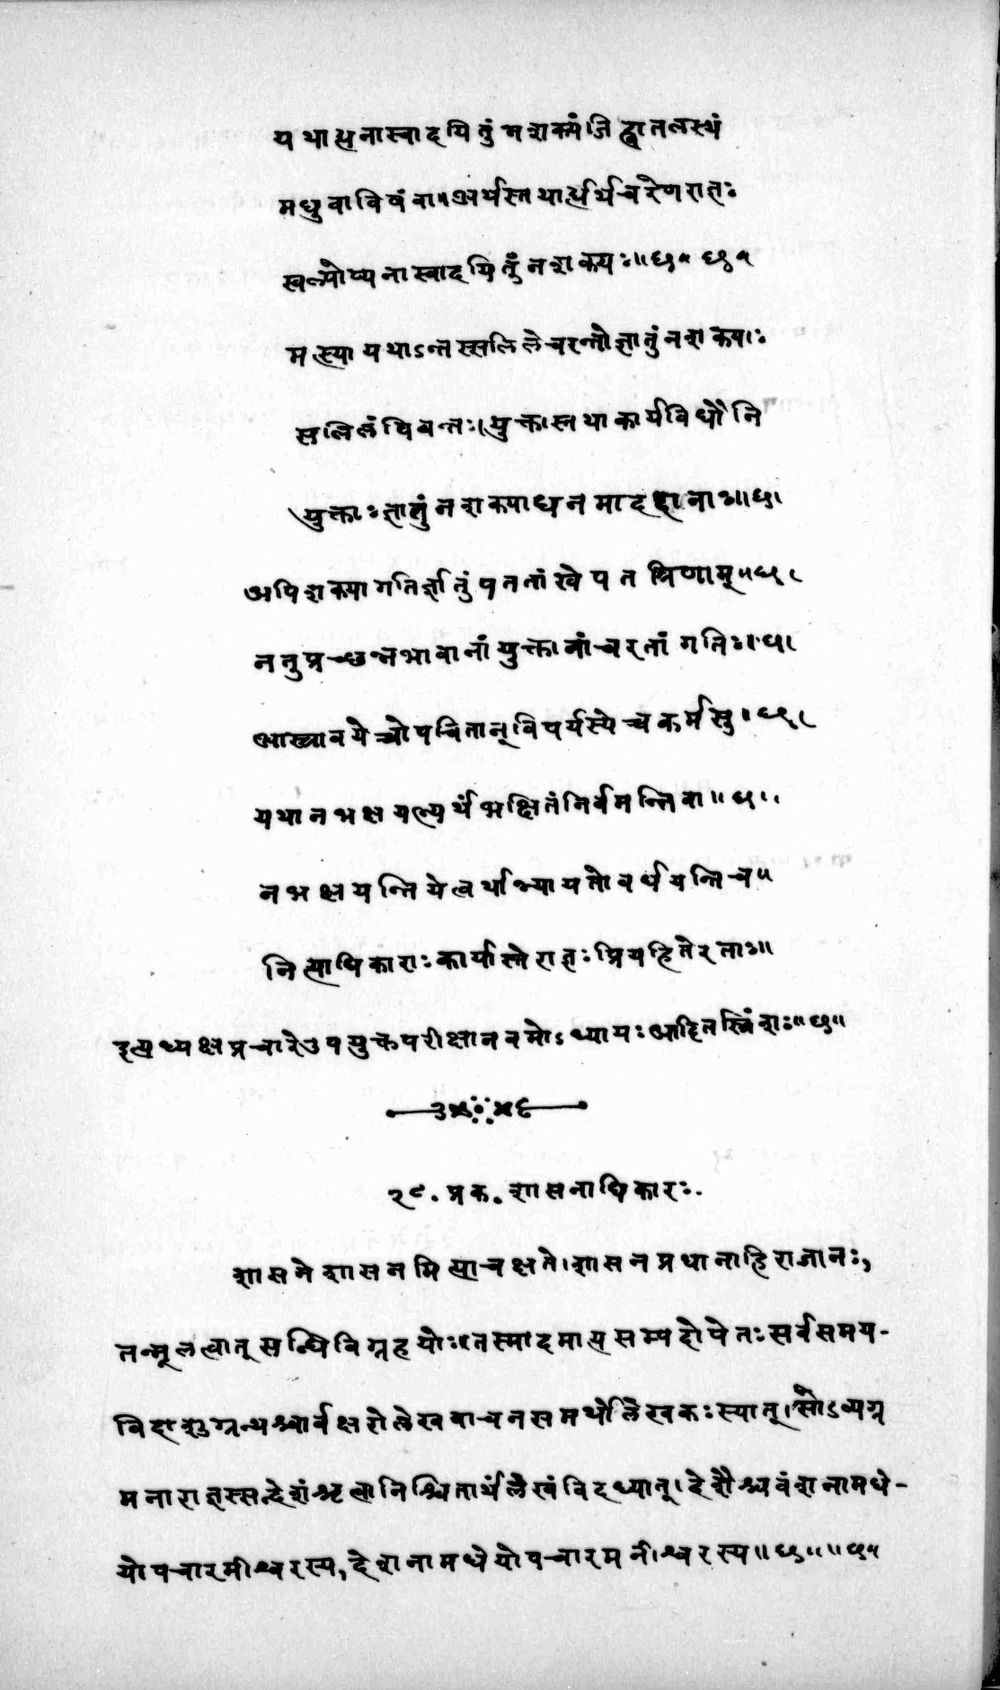 यथाह्यनास्वादयितुंनशक्यंजिह्वातलस्थं
मधुवाविषंवा॥अर्थस्तथाह्यर्थचरेणराज्ञः
स्वल्पोप्यनास्वादयितुंनशक्यः॥
मत्स्यायथाऽन्तस्सलिलेचरन्तोज्ञातुंनशक्याः
सलिलंपिबन्तः।युक्तास्तथाकार्यविधौनि
युक्ताःज्ञातुंनशक्याधनमाददानाः॥
अपिशक्यागतिर्ज्ञातुंपततांखेपतत्रिणाम्॥
नतुप्रच्छन्नभावानांयुक्तानांचरतांगतिः॥
आस्रावयेच्चोपचितान्विपर्यस्येच्चकर्मसु।
यथानभक्षयन्त्यर्थंभक्षितंनिर्वमन्तिवा॥
नभक्षयन्तियेत्वर्थान्न्यायतोवर्धयन्तिच॥
नित्याधिकाराःकार्यास्तेराज्ञःप्रियहितेरताः॥
इत्यध्यक्षप्रचारेउपयुक्तपरीक्षानवमोऽध्यायःआदितस्त्रिंशः॥
२८. प्रक. शासनाधिकारः.
शासनेशासनमित्याचक्षते।शासनप्रधानाहिराजानः,
तन्मूलत्वात्सन्धिविग्रहयोः।तस्मादमात्यसम्पदोपेतःसर्वसमय-
विदाशुग्रन्थश्चार्वक्षरोलेखवाचनसमर्थोलेखकःस्यात्।सोऽव्यग्र
मनाराज्ञस्सन्देशंश्रुत्वानिश्चितार्थंलेखंविदध्यात्।देशैश्वर्यवंशनामधे-
योपचारमीश्वरस्य,देशनामधेयोपचारमनीश्वरस्य॥